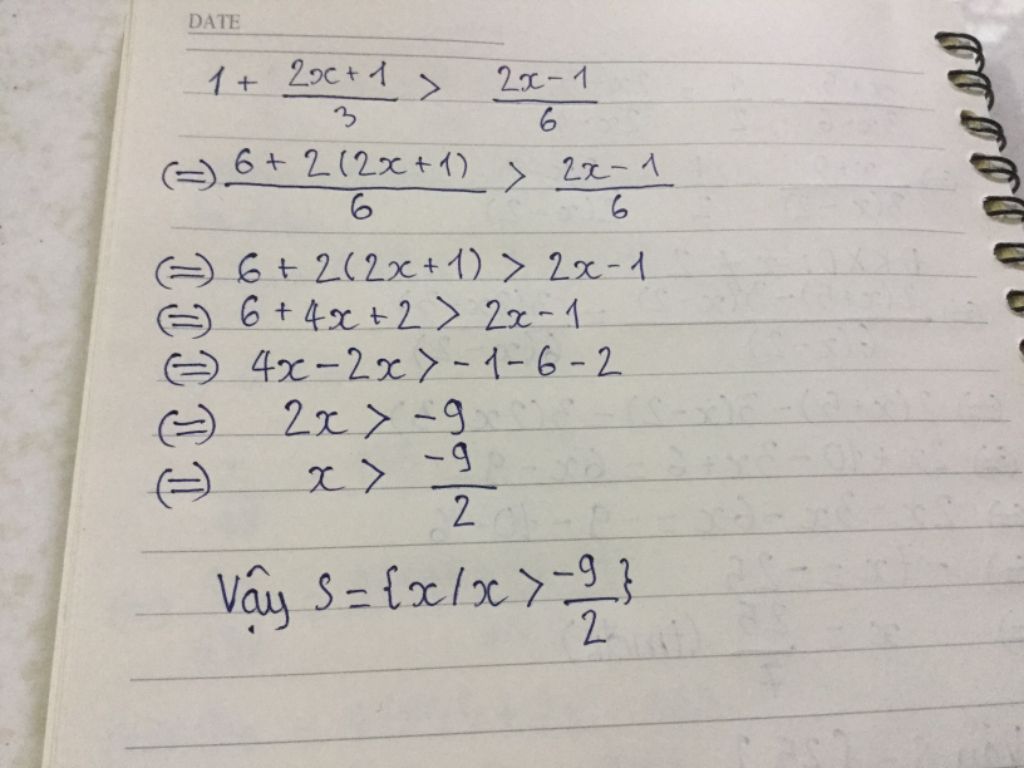 DATE
1 + (2x+1)/3 > (2x-1)/6
(=) (6 + 2(2x+1))/6 > (2x-1)/6
(=) 6 + 2(2x+1) > 2x-1
(=) 6 + 4x + 2 > 2x - 1
(=) 4x - 2x > -1 - 6 - 2
(=) 2x > -9
(=) x > -9/2
Vậy S = {x/x > -9/2}